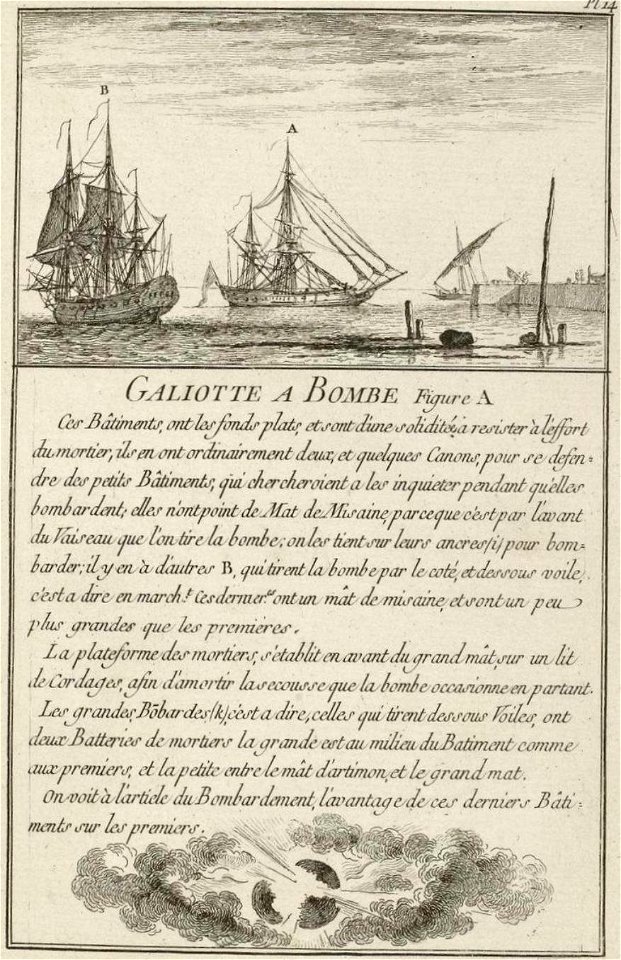 Pl 14
B
A
GALIOTTE A BOMBE Figure A
Ces Bâtiments, ont les fonds plats, et sont d'une solidité à resister à l'effort
du mortier, ils en ont ordinairement deux, et quelques Canons, pour se defen-
dre des petits Bâtiments, qui chercheroient a les inquieter pendant qu'elles
bombardent; elles n'ont point de Mat de Misaine, parce que c'est par l'avant
du Vaiseau que l'on tire la bombe; on les tient sur leurs ancres (i) pour bom-
barder; il y en à d'autres B, qui tirent la bombe par le coté, et dessous voile,
c'est a dire en march.t Ces dernier.es ont un mât de misaine, et sont un peu
plus grandes que les premières.
La plateforme des mortiers, s'établit en avant du grand mât, sur un lit
de Cordages, afin d'amortir la secousse que la bombe occasionne en partant.
Les grandes Bõbardes (k) c'est a dire, celles qui tirent dessous Voiles, ont
deux Batteries de mortiers la grande est au milieu du Batiment comme
aux premiers, et la petite entre le mât d'artimon, et le grand mat.
On voit à l'article du Bombardement, l'avantage de ces derniers Bâti-
ments sur les premiers.